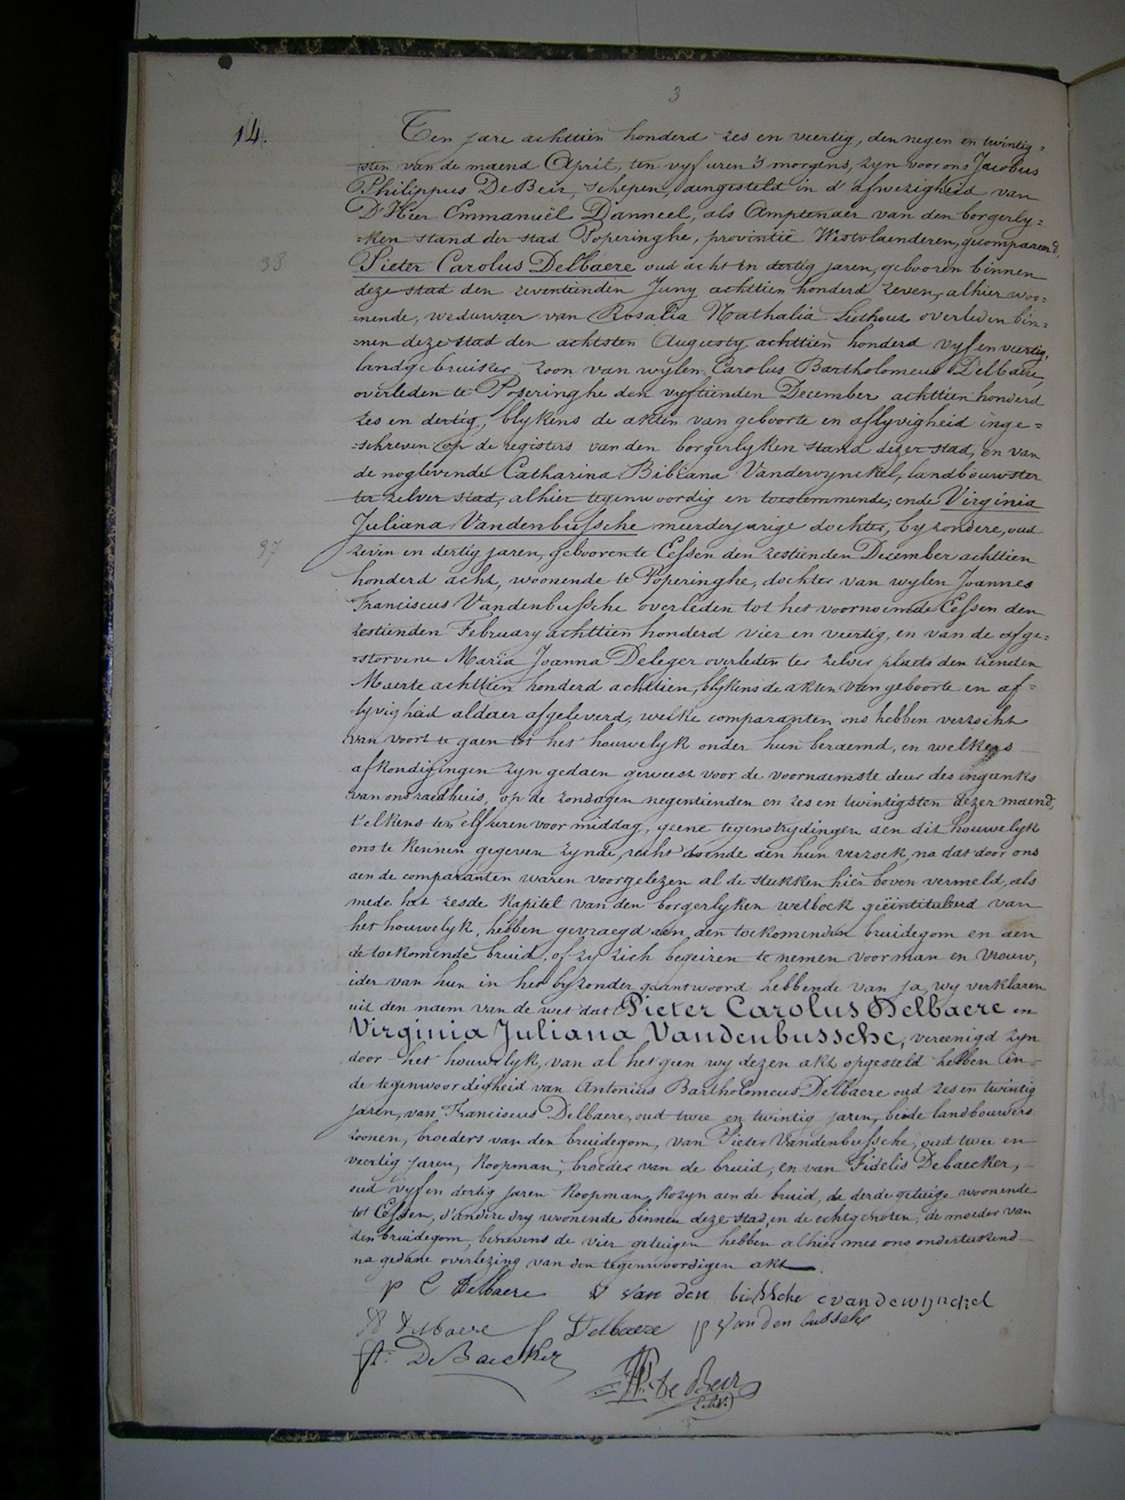 3
14.
Ten jare achttien honderd zes en veertig, den negen en twintig=
sten van de maend April, ten vyf uren 's morgens, zyn voor ons Jacobus
Philippus De Beir, schepen, aengesteld in d'afwezigheid van
D'Heer Emmanuël Danneel, als Amptenaer van den borgerly=
=ken stand der stad Poperinghe, provintie Westvlaenderen, gecompareerd,
38
Pieter Carolus Delbaere oud acht en dertig jaren, gebooren binnen
deze stad den zeventienden Juny achttien honderd zeven, alhier woo=
nende, weduwaer van Rosalia Nathalia overleden bin=
=nen deze stad den achtsten Augusty achttien honderd vyf en veertig,
landgebruiker, zoon van wylen Carolus Bartholomeus Delbaere,
overleden te Poperinghe den vyftienden December achttien honderd
zes en dertig, blykens de akten van geboorte en aflyvigheid inge=
=schreven op de registers van den borgerlyken stand dezer stad, en van
de noglevende Catharina Bibiana Vanderwynckel, landbouwster
ter zelver stad, alhier tegenwoordig en toestemmende; ende Virginia
Juliana Vandenbussche meerderjarige dochter, byzondere, oud
37
zeven en dertig jaren, gebooren te Eessen den zestienden December achttien
honderd acht, woonende te Poperinghe, dochter van wylen Joannes
Franciscus Vandenbussche overleden tot het voornoemde Eessen den
zestienden February achttien honderd vier en veertig, en van de afge=
=storvene Maria Joanna Deleger overleden ter zelver plaets den tienden
Maerte achttien honderd achttien, blykens de akten van geboorte en af=
=lyvigheid aldaer afgeleverd, welke comparanten ons hebben verzocht
van voort te gaen tot het houwelyk onder hun beraemd, en welkers
afkondigingen zyn gedaen geweest voor de voornaemste deur des inganks
van ons raedhuis, op de zondagen negentienden en zes en twintigsten dezer maend,
telkens ten elf uren voor middag, geene tegenstrydingen aen dit houwelyk
ons te kennen gegeven zynde, recht doende aen hun verzoek, na dat door ons
aen de comparanten waren voorgelezen al de stukken hier boven vermeld, als
mede het zesde kapitel van den borgerlyken wetboek geïntituleerd van
het houwelyk, hebben gevraegd aen den toekomenden bruidegom en aen
de toekomende bruid, of zy zich begeiren te nemen voor man en vrouw,
ider van hun in het byzonder geantwoord hebbende van ja, wy verklaren
uit den naem van de wet dat Pieter Carolus Delbaere en
Virginia Juliana Vandenbussche, vereenigd zyn
door het houwelyk, van al het geen wy dezen akt opgesteld hebben in
de tegenwoordigheid van Antonius Bartholomeus Delbaere oud zes en twintig
jaren, van Franciscus Delbaere, oud twee en twintig jaren, beide landbouwers
zoonen, broeders van den bruidegom, van Pieter Vandenbussche, oud twee en
veertig jaren, koopman, broeder van de bruid, en van Fidelis Debaecker,
oud vyf en dertig jaren koopman, kozyn aen de bruid, de derde getuige woonende
tot Eessen, d'andere dry woonende binnen deze stad, en de echtgenoten, de moeder van
den bruidegom, benevens de vier getuigen hebben alhier met ons onderteekend
na gedane overlezing van den tegenwoordigen akt.
p C Delbaere V van den bussche c vandewynckel
Delbaere f Delbaere p van den bussche
De Baecker
De Beir